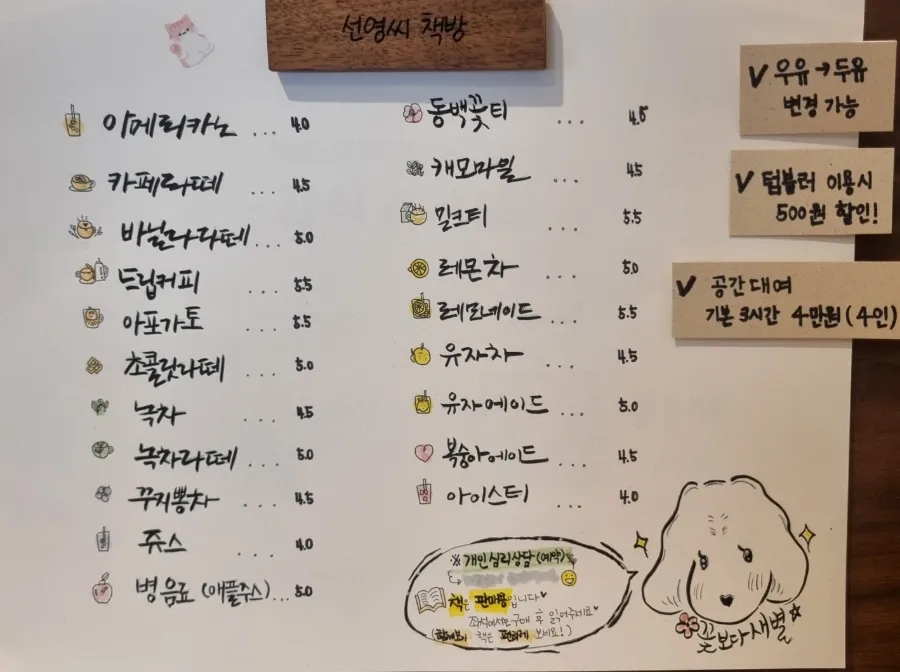 선영씨 책방
아메리카노 ... 4.0
카페라떼 ... 4.5
바닐라라떼 ... 5.0
드립커피 ... 5.5
아포가토 ... 5.5
초콜릿라떼 ... 5.0
녹차 ... 4.5
녹차라떼 .... 5.0
꾸지뽕차 .... 4.5
쥬스 ... 4.0
병음료 (애플주스)... 5.0
동백꽃티 ... 4.5
캐모마일 ... 4.5
밀크티 ... 5.5
레몬차 ... 5.0
레몬에이드 ... 5.5
유자차 ... 4.5
유자에이드 ... 5.0
복숭아에이드 ... 4.5
아이스티 ... 4.0
✓ 우유→두유
변경 가능
✓ 텀블러 이용시
500원 할인!
✓ 공간대여
기본 3시간 4만원 (4인)
※ 개인심리상담 (예약)
책은 판매용입니다♥
좌석에서는 구매 후 읽어주세요♥
책은 편하게 보세요!)
꽃보다새별